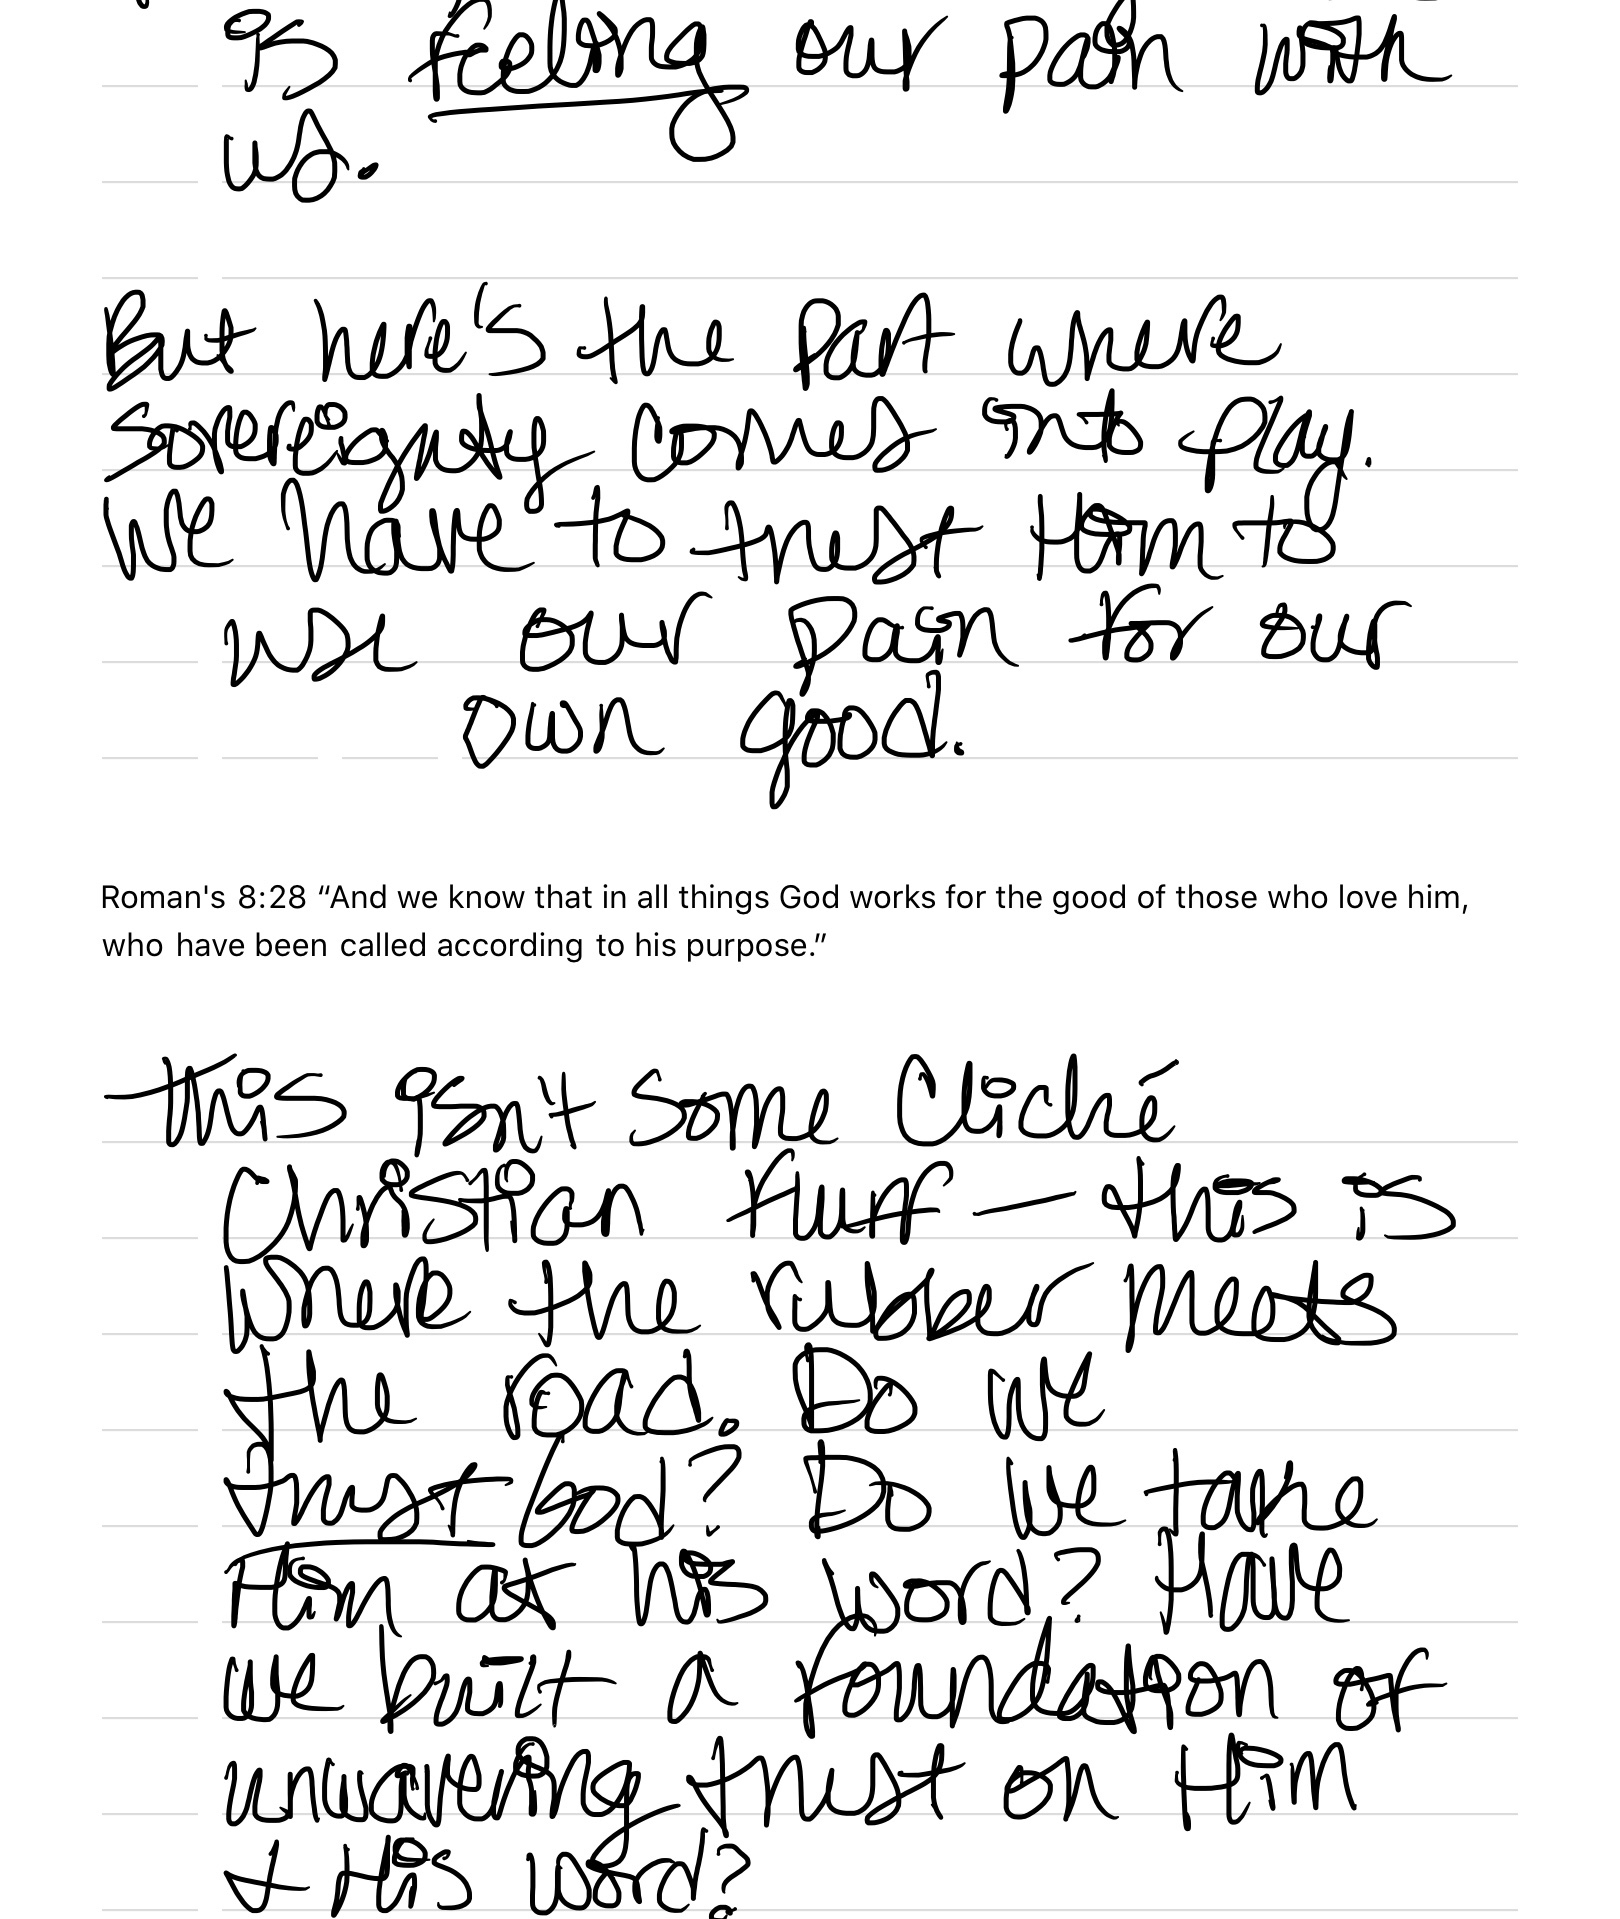 is feeling our pain with
us.
But here's the part where
sovereignty comes into play.
We have to trust Him to
use our pain for our
own good.
Roman's 8:28 “And we know that in all things God works for the good of those who love him,
who have been called according to his purpose.”
This isn't some Cliché
Christian fluff — this is
where the rubber meets
the road. Do we
trust God? Do we take
Him at his word? Have
we built a foundation of
unwavering trust on Him
& His word?